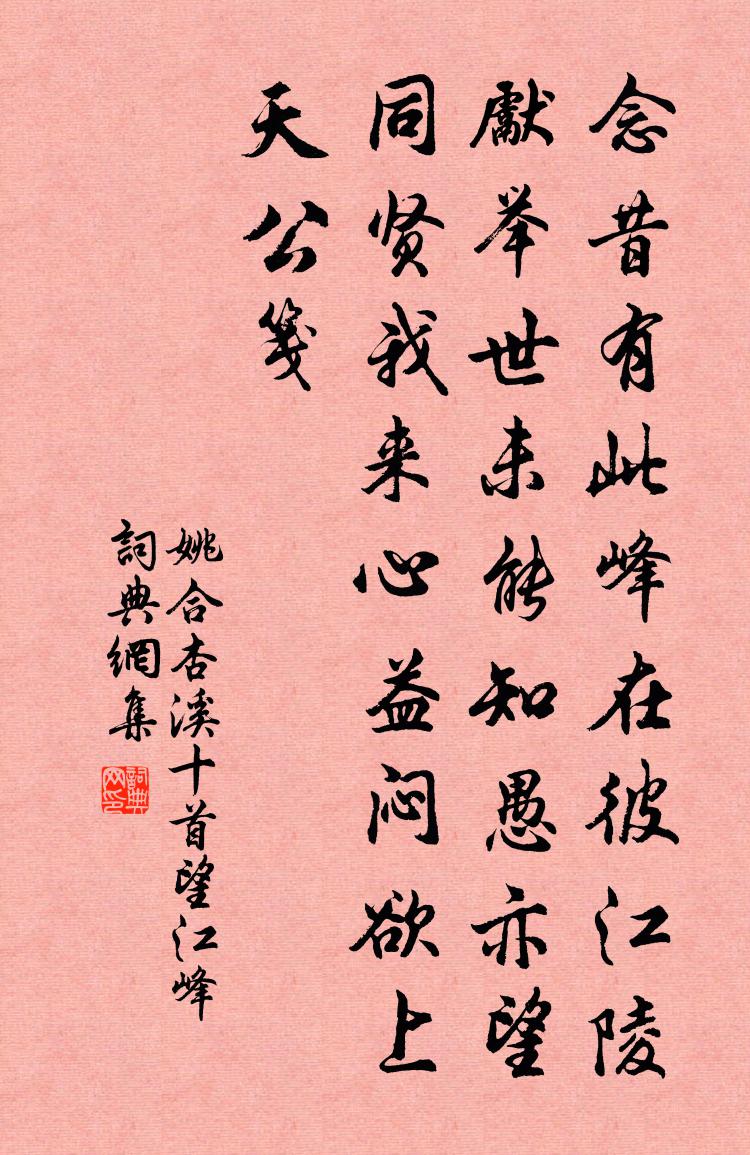 念昔有此峰在彼江陵
献举世未能知愚亦望
同贤我来心益闷欲上
天公笺
姚合杏溪十首望江峰
詞典網集
詞典网印